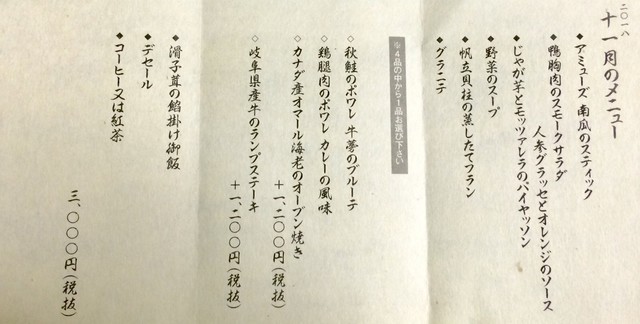 二〇一八
十一月のメニュー
◆アミューズ 南瓜のスティック
◆鴨胸肉のスモークサラダ
人参グラッセとオレンジのソース
◆じゃが芋とモッツァレラのパイヤッソン
◆野菜のスープ
◆帆立貝柱の蒸したてフラン
◆グラニテ
※4品の中から1品お選び下さい
◇秋鮭のポワレ 牛蒡のブルーテ
◇鶏腿肉のポワレ カレーの風味
◇カナダ産オマール海老のオーブン焼き
+一、二〇〇円(税抜)
◇岐阜県産牛のランプステーキ
+一、二〇〇円(税抜)
◆滑子茸の餡掛け御飯
◆デセール
◆コーヒー又は紅茶
三、〇〇〇円(税抜)